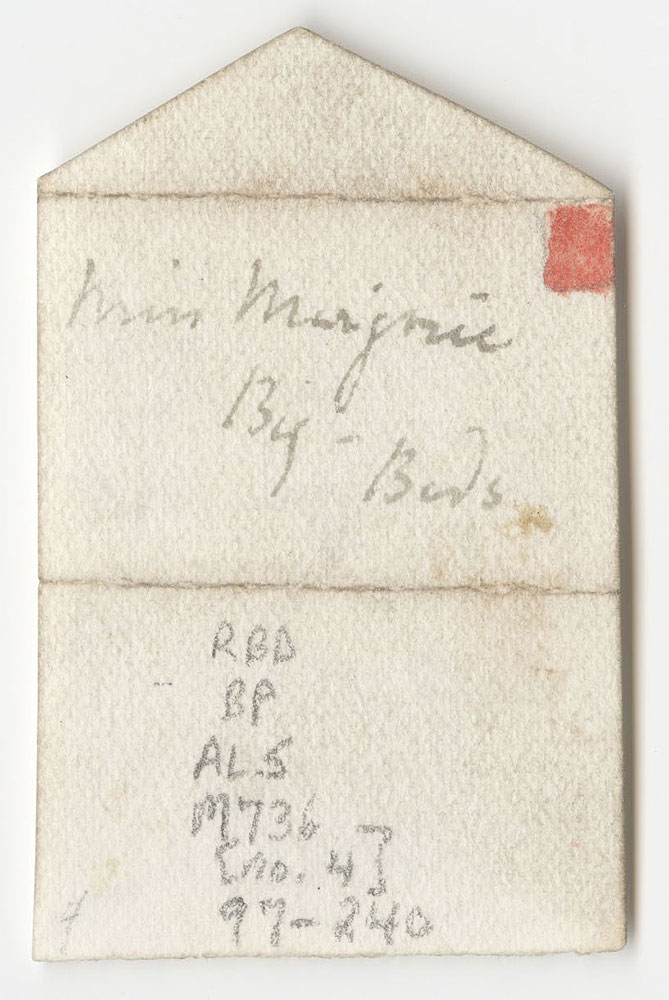 Miss Marjorie
Big-Beds
RBD
BP
ALS
M736
[no. 4]
97-240
4